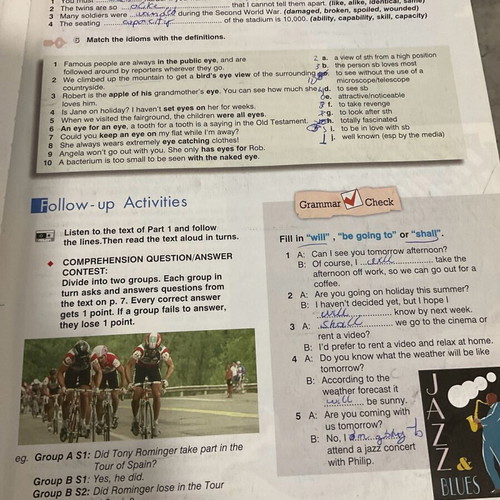 1 You must
that I cannot tell them apart. (like, alike, identical, same)
2 The twins are so alike
3 Many soldiers were wounded during the Second World War. (damaged, broken, spoiled, wounded)
4 The seating capacity of the stadium is 10,000. (ability, capability, skill, capacity)
6 Match the idioms with the definitions.
1 Famous people are always in the public eye, and are
followed around by reporters wherever they go.
2 We climbed up the mountain to get a bird's eye view of the surrounding
countryside.
3 Robert is the apple of his grandmother's eye. You can see how much she
loves him.
4 Is Jane on holiday? I haven't set eyes on her for weeks.
5 When we visited the fairground, the children were all eyes.
6 An eye for an eye, a tooth for a tooth is a saying in the Old Testament.
7 Could you keep an eye on my flat while I'm away?
8 She always wears extremely eye catching clothes!
9 Angela won't go out with you. She only has eyes for Rob.
10 A bacterium is too small to be seen with the naked eye.
2 a. a view of sth from a high position
3 b. the person sb loves most
10 to see without the use of a
microscope/telescope
4 d. to see sb
8 e. attractive/noticeable
f. to take revenge
g. to look after sth
h. totally fascinated
i. to be in love with sb
1 j. well known (esp by the media)
Follow-up Activities
Listen to the text of Part 1 and follow
the lines.Then read the text aloud in turns.
COMPREHENSION QUESTION/ANSWER
CONTEST:
Divide into two groups. Each group in
turn asks and answers questions from
the text on p. 7. Every correct answer
gets 1 point. If a group fails to answer,
they lose 1 point.
eg. Group A S1: Did Tony Rominger take part in the
Tour of Spain?
Group B S1: Yes, he did.
Group B S2: Did Rominger lose in the Tour
Grammar Check
Fill in "will", "be going to" or "shall".
1 A: Can I see you tomorrow afternoon?
B: Of course, I will take the
afternoon off work, so we can go out for a
coffee.
2 A: Are you going on holiday this summer?
B: I haven't decided yet, but I hope I
will know by next week.
3 A: shall we go to the cinema or
rent a video?
B: I'd prefer to rent a video and relax at home.
4 A: Do you know what the weather will be like
tomorrow?
B: According to the
weather forecast it
will be sunny.
5 A: Are you coming with
us tomorrow?
B: No, I am going to
attend a jazz concert
with Philip.
JAZZ
&
BLUES